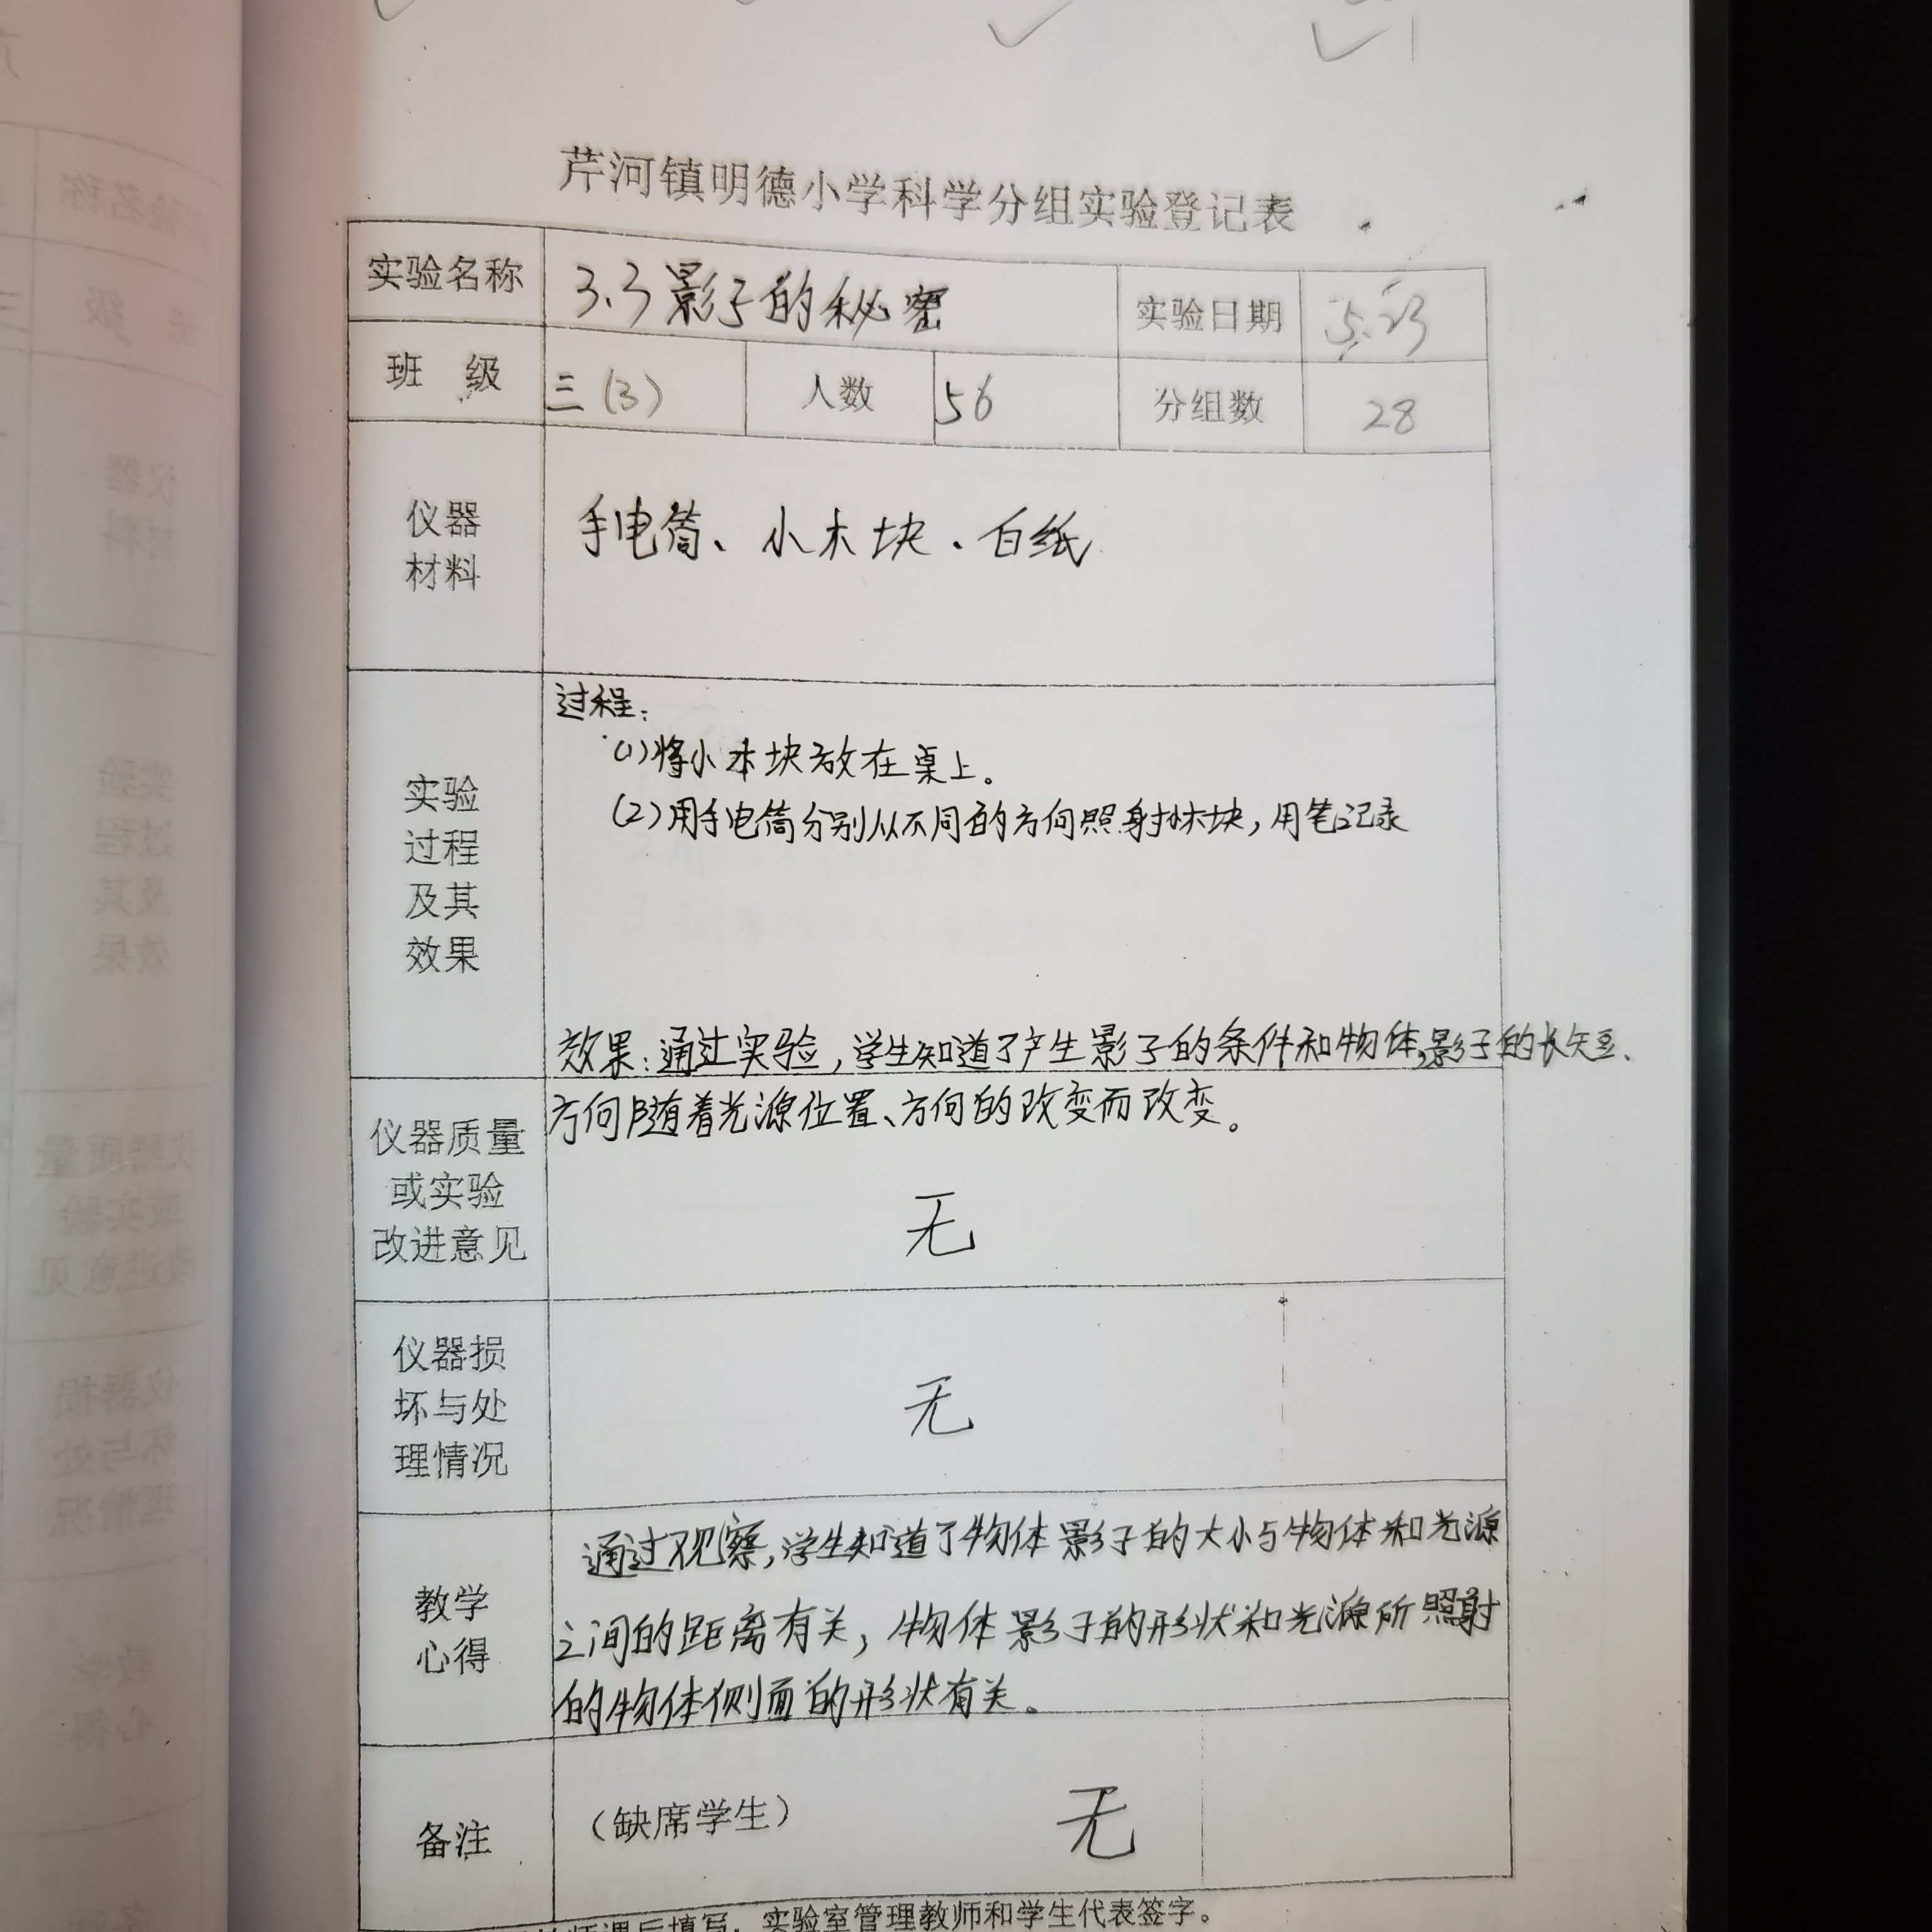 芹河镇明德小学科学分组实验登记表
实验名称 3.3影子的秘密 实验日期 5.23
班 级 三(3) 人数 56 分组数 28
仪器
材料
手电筒、小木块、白纸
实验
过程
及其
效果
过程:
(1)将小木块放在桌上。
(2)用手电筒分别从不同的方向照射木块,用笔记录
效果:通过实验,学生知道了产生影子的条件和物体,影子的长短、
方向随着光源位置、方向的改变而改变。
仪器质量
或实验
改进意见
无
仪器损
坏与处
理情况
无
教学
心得
通过观察,学生知道了物体影子的大小与物体和光源
之间的距离有关,物体影子的形状和光源所照射
的物体侧面的形状有关。
备注 (缺席学生) 无
师课后填写,实验室管理教师和学生代表签字。